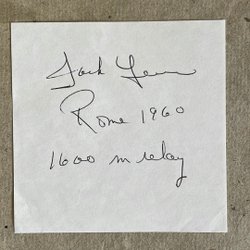 Jack Yerman
Rome 1960
1600 m relay